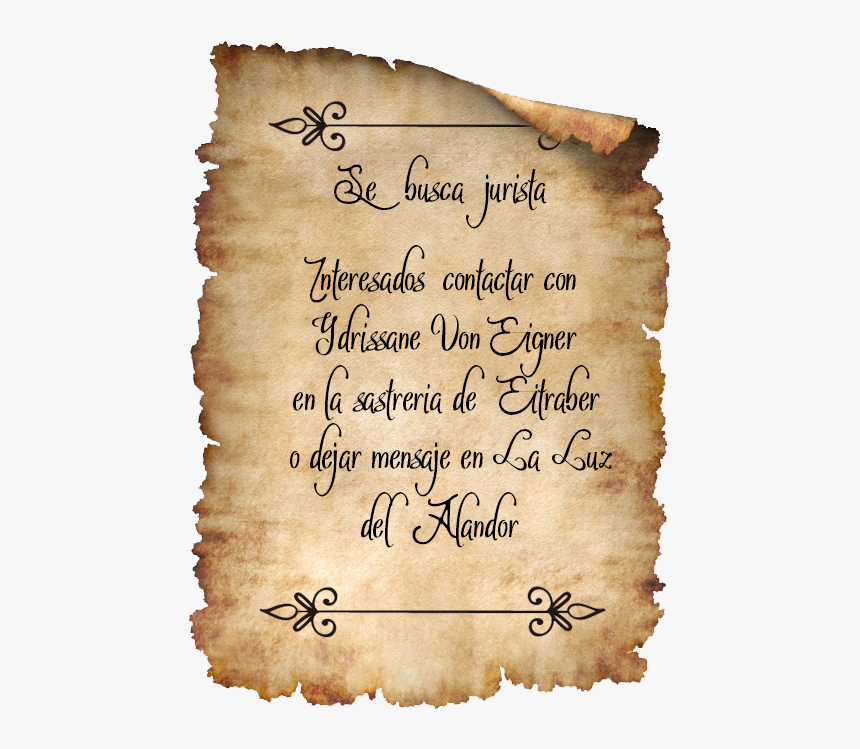 Se busca jurista
Interesados contactar con
Ydrissane Von Eigner
en la sastreria de Eitraber
o dejar mensaje en La Luz
del Alandor